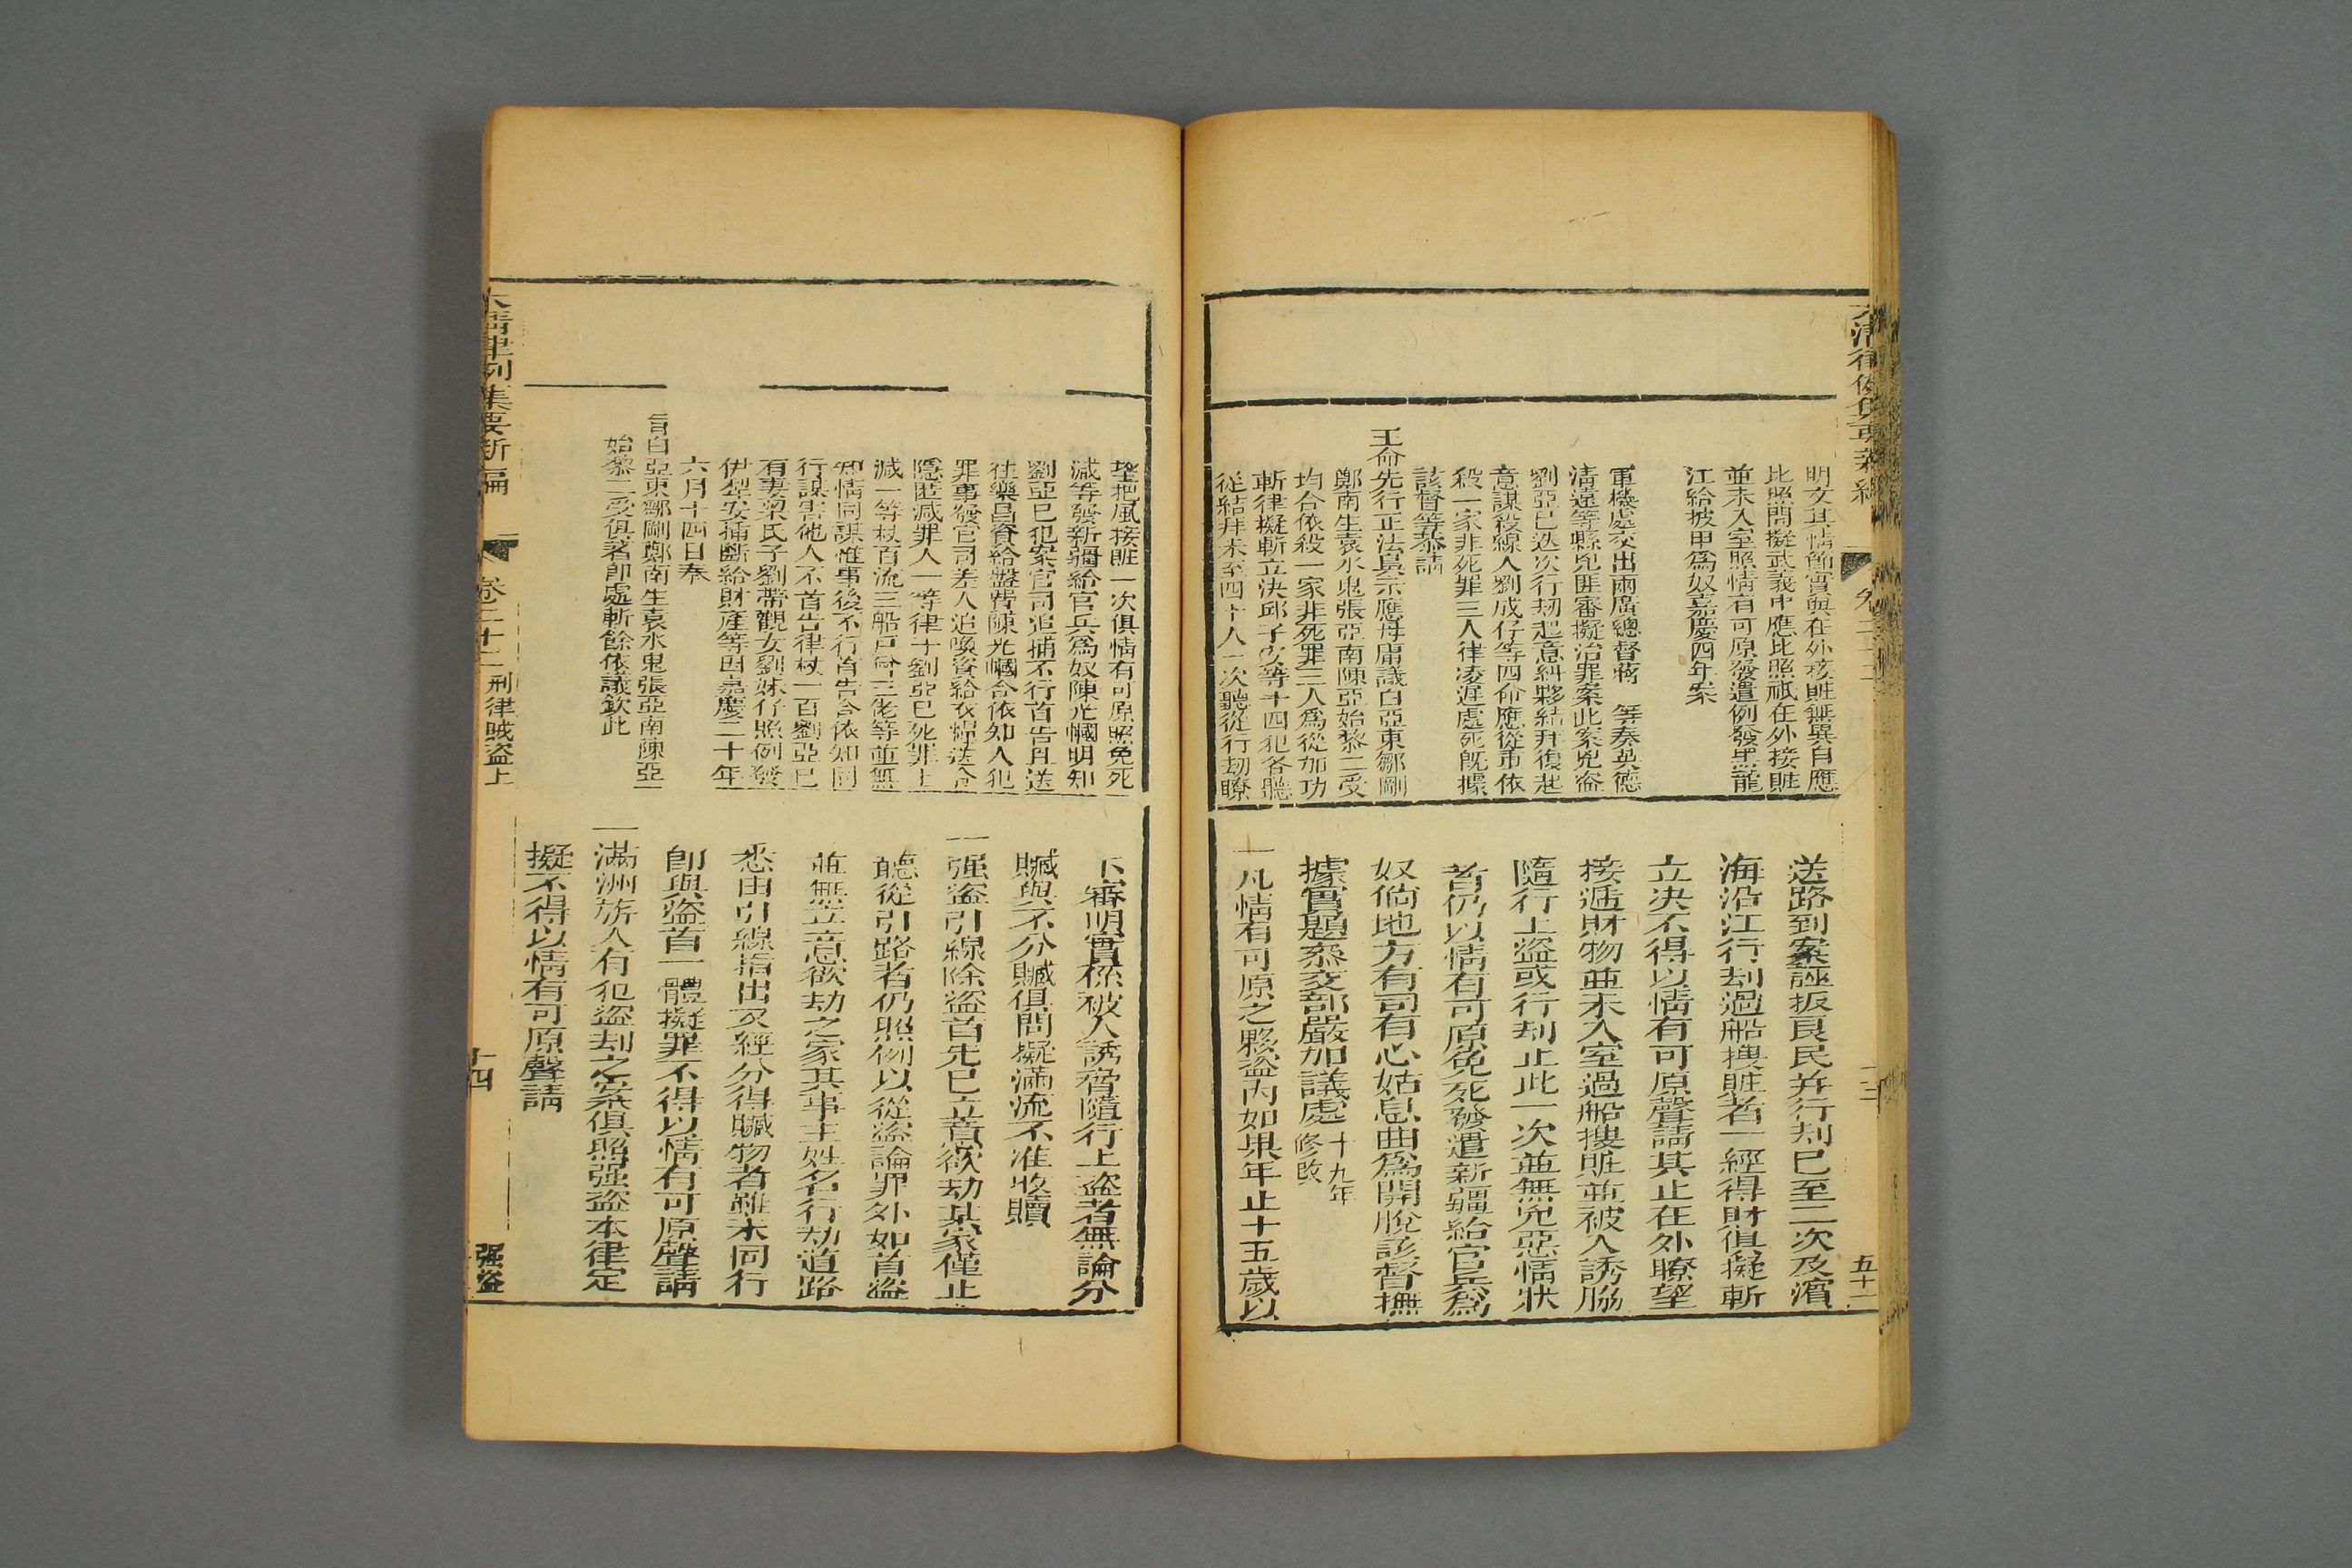 明文其情節實與在外接贓無異自應
比照問擬武義中應比照祇在外接贓
並未入室照情有可原發遣例發黑龍
江給披甲爲奴嘉慶四年案
軍機處交出兩廣總督蔣 等奏英德
清遠等縣兇匪審擬治罪案此案兇盜
劉亞巳迭次行刼起意糾夥結拜復起
意謀殺線人劉成仔等四命應從重依
殺一家非死罪三人律凌遲處死旣據
該督等恭請
王命先行正法梟示應毋庸議白亞東鄒剛
鄭南生袁水鬼張亞南陳亞始黎二受
均合依殺一家非死罪三人爲從加功
斬律擬斬立決邱子安等十四犯各聽
從結拜未至四十人一次聽從行刼瞭
送路到案誣扳良民并行刦已至二次及濱
海沿江行刦過船搜賍者一經得財俱擬斬
立决不得以情有可原聲請其止在外瞭望
接遞財物並未入室過船搜賍並被人誘脇
隨行上盜或行刦止此一次並無兇惡情狀
者仍以情有可原免死發遣新疆給官兵爲
奴倘地方有司有心姑息曲爲開脫該督撫
據實題叅交部嚴加議處 十九年修改
一凡情有可原之夥盜內如果年止十五歲以
五十二
望把風接贓一次俱情有可原照免死
減等發新疆給官兵爲奴陳光幗明知
劉亞巳犯案官司追捕不行首告且送
往樂昌資給盤費陳光幗合依知人犯
罪事發官司差人追喚資給衣糧送令
隱匿減罪人一等律于劉亞巳死罪上
減一等杖百流三船戶 三佬等並無
知情同謀惟事後不行首告合依知同
行謀害他人不首告律杖一百劉亞巳
有妻梁氏子劉帶觀女劉妹仔照例發
伊犁安插斷給財產等因嘉慶二十年
六月十四日奏
旨白亞東鄒剛鄭南生袁水鬼張亞南陳亞
始黎二受俱著卽處斬餘依議欽此
下審明實係被人誘脅隨行上盜者無論分
贓與不分贓俱問擬滿流不准收贖
一强盜引線除盜首先已立意欲劫某家僅止
聽從引路者仍照例以從盜論罪外如首盜
並無立意欲劫之家其事主姓名行劫道路
悉由引線指出又經分得贓物者雖未同行
卽與盜首一體擬罪不得以情有可原聲請
一滿洲旂人有犯盜刦之案俱照强盜本律定
擬不得以情有可原聲請
大清律例集要新編
卷二十二
刑律賊盜上
十四
强盜